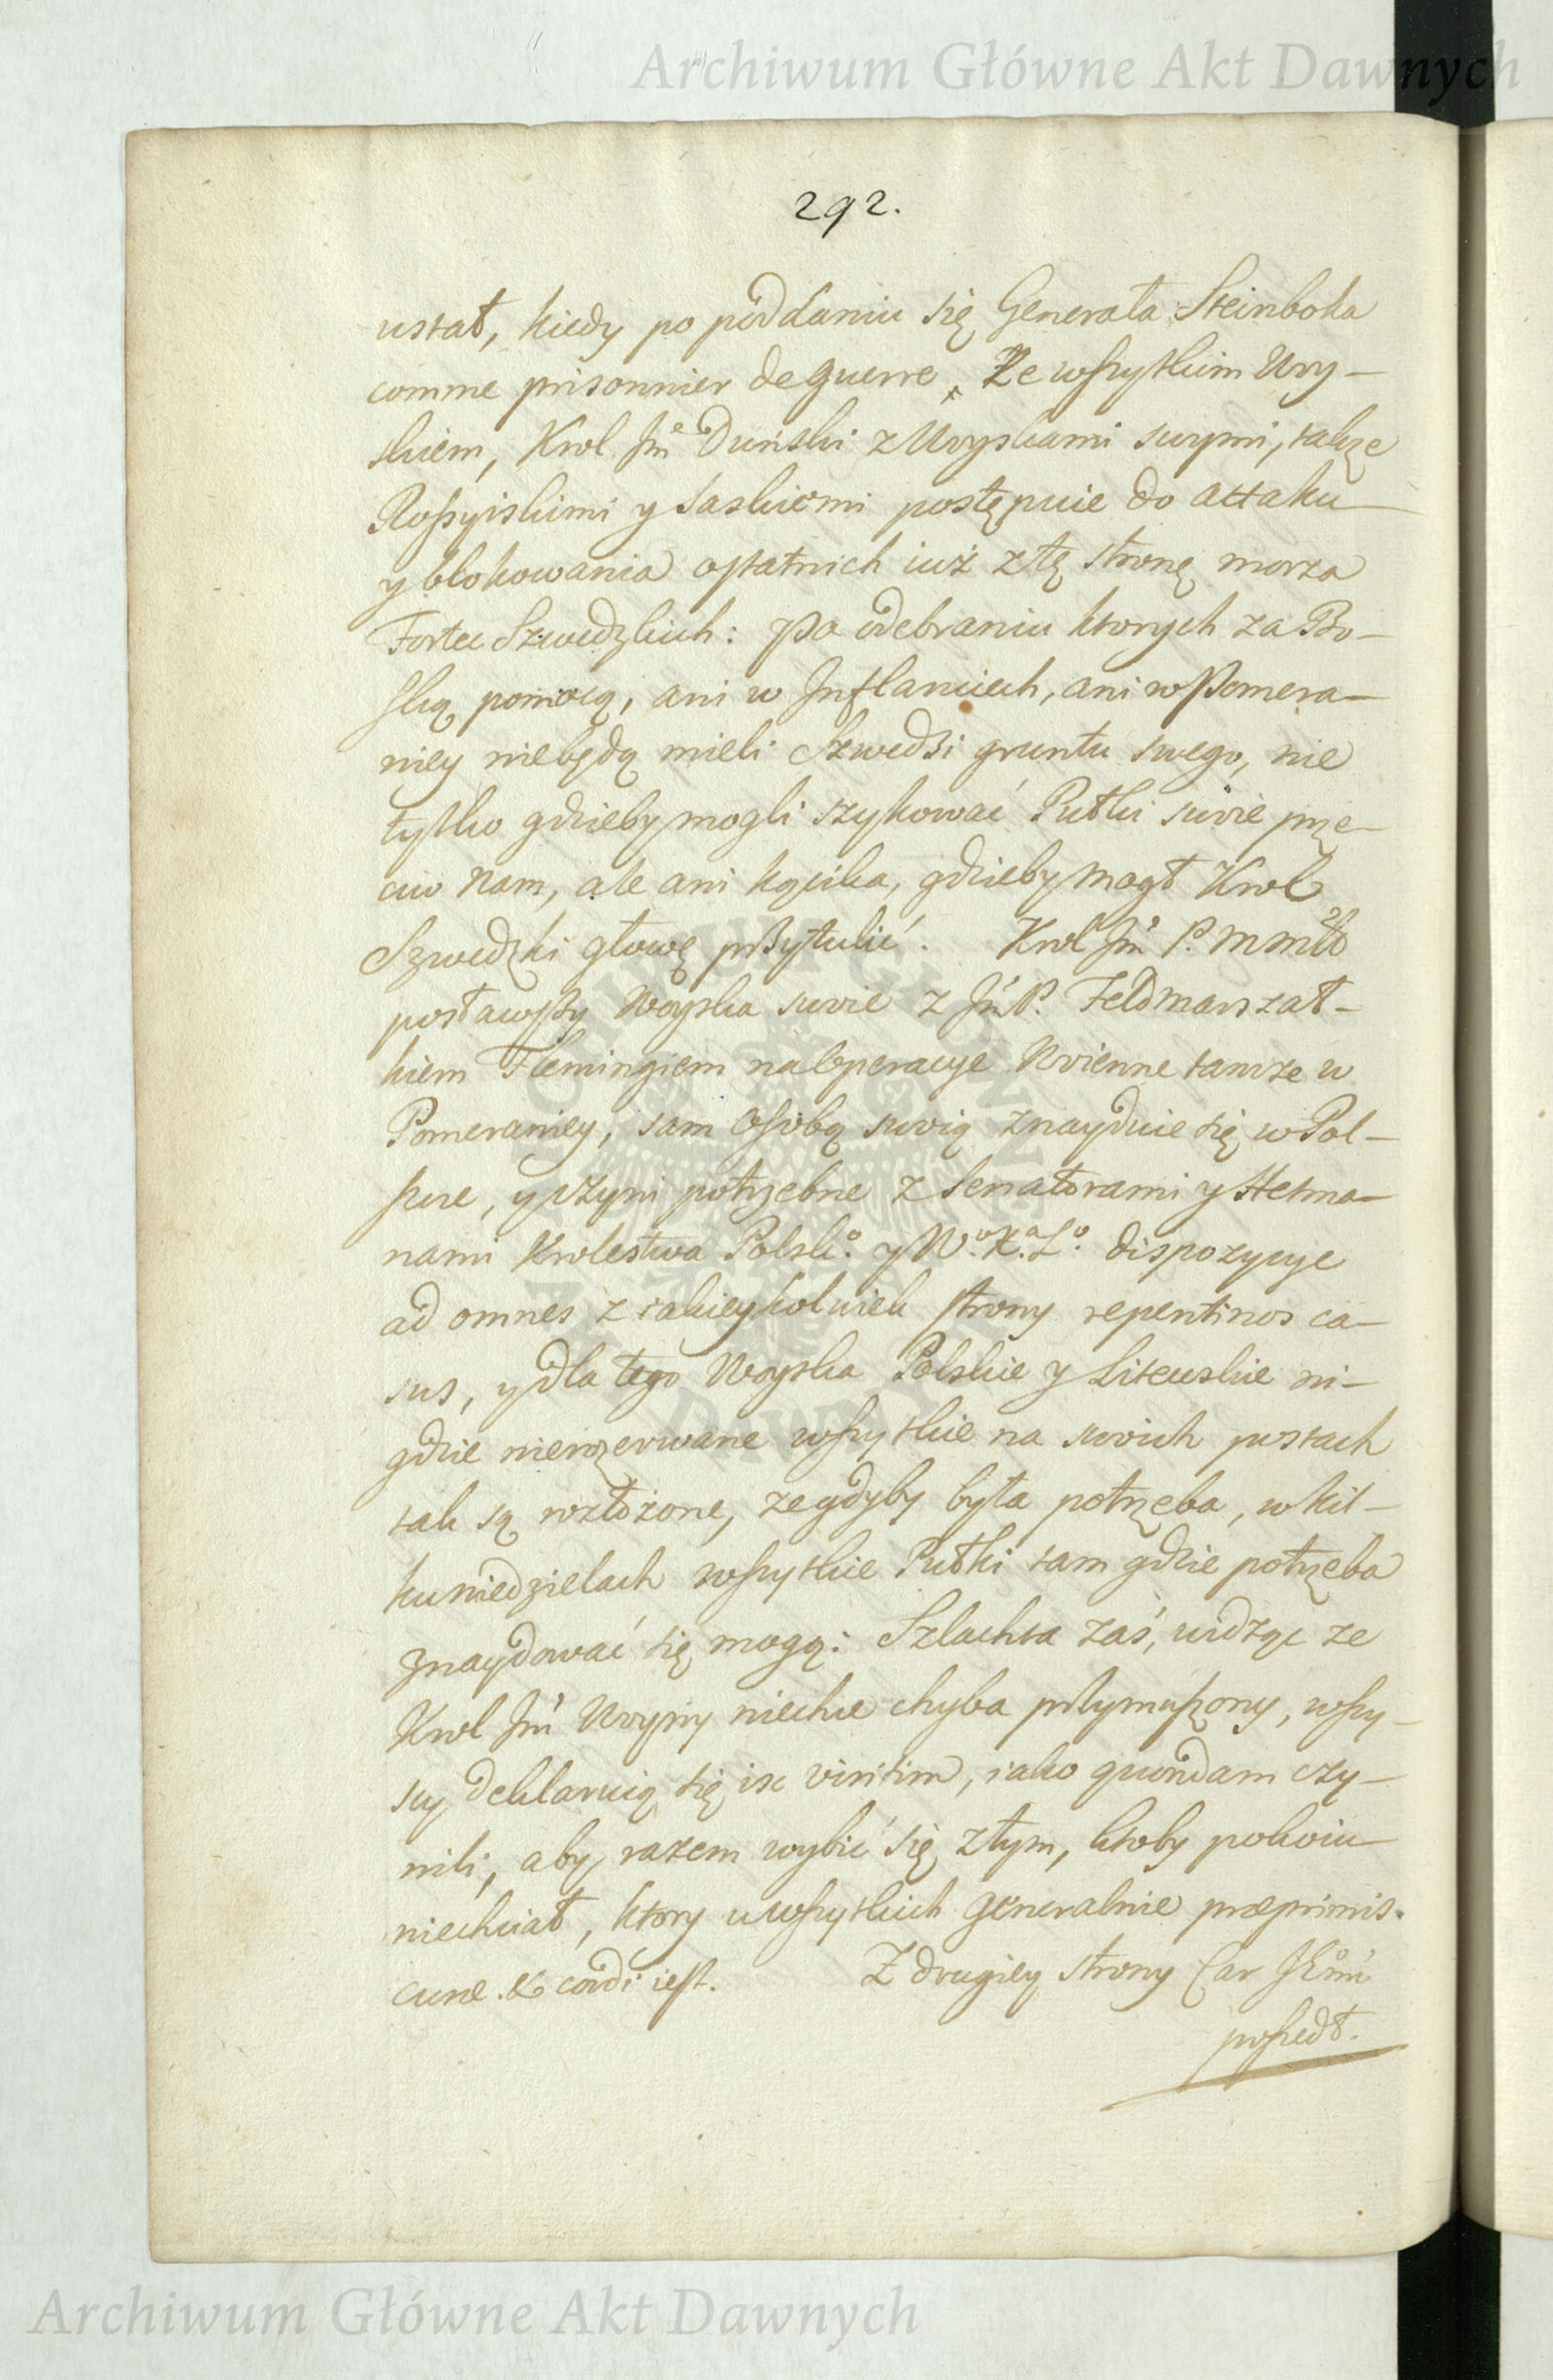 Archiwum Główne Akt Dawnych
292.
ustał, kiedy po poddaniu się Generała Steinboka
comme prisonnier de guerre, Ze wszytkim Woy-
skiem, Krol Jm̃ Dunski z Woyskami swymi, takze
Rossyiskimi y Saskiemi postępuie do attaku
y blokowania ostatnich iuż z tę stronę morza
Fortec Szwedzkich: Po odebraniu ktorych za Bo-
ską pomocą, ani w Inflanciech, ani w Pomera-
niey niebędą mieli Szwedzi gruntu swego, nie
tylko gdzieby mogli szykować Pułki swoie prze-
ciw nam, ale ani kącika, gdzieby mogł Krol
Szwedzki głowę przytulić. Krol Jm̃ P. M mił
postawszy Woyska swoie z Jm̃ P. Feldmarszał-
kiem Flemingiem na Operacye Woienne tamze w
Pomeraniey, sam osobą swoią znayduie się w Pol-
szcze, y czyni potrzebne z Senatorami y Hetma-
nami Krolestwa Polsk.º y W.º X.ª L.º dispozycye
ad omnes z iakieykolwiek strony repentinos ca-
sus, y dla tego Woyska Polskie y Litewskie ni-
gdzie nierozerwane wszytkie na swoich postach
tak są rozłożone, ze gdyby była potrzeba, w kil-
ku niedzielach wszytkie Pułki tam gdzie potrzeba
znaydować się mogą: Szlachta zaś, widząc ze
Krol Jm̃ Woyny niechce chyba przymuszony, wszy-
scy deklaruią się isc viritim, iako quondam czy-
nili, aby razem wybić się z tym, ktoby pokoiu
niechciał, ktory u wszytkich generalnie præprimis
curæ & cordi iest. Z drugiey strony Car JEm̃
poszedł.
Archiwum Główne Akt Dawnych